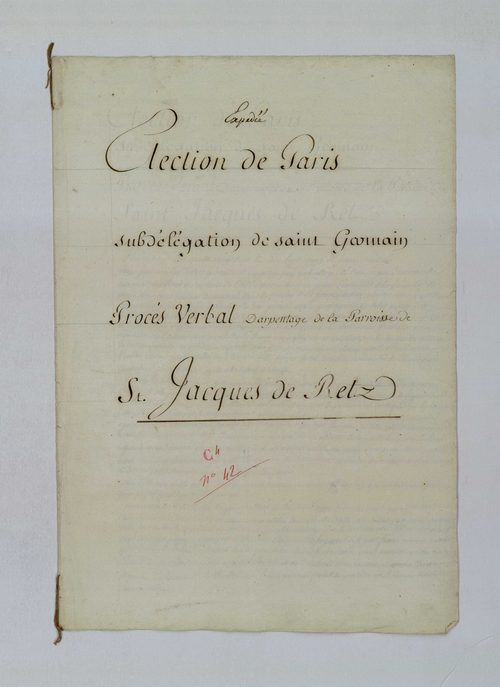 Expediée
Election de Paris
subdélégation de saint Germain
Procés Verbal Darpentage de la Parroisse de
St. Jacques de Retz
C4
n° 42.